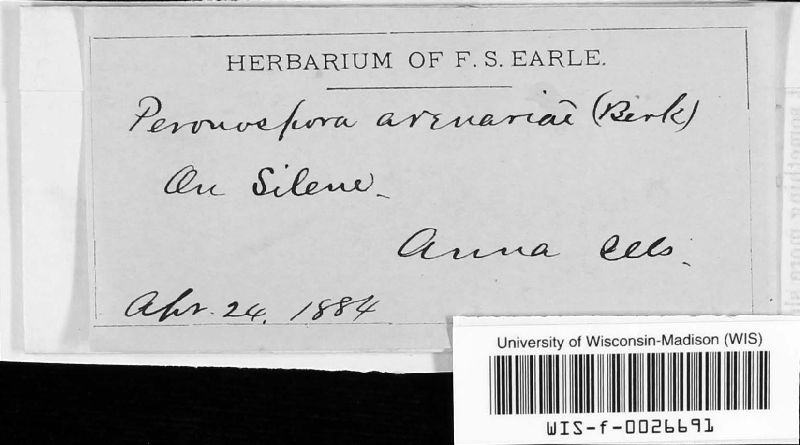 HERBARIUM OF F. S. EARLE.
Peronospora arenariae (Berk)
On Silene
Anna Ills.
Apr. 24, 1884
University of Wisconsin-Madison (WIS)
WIS-f-0026691